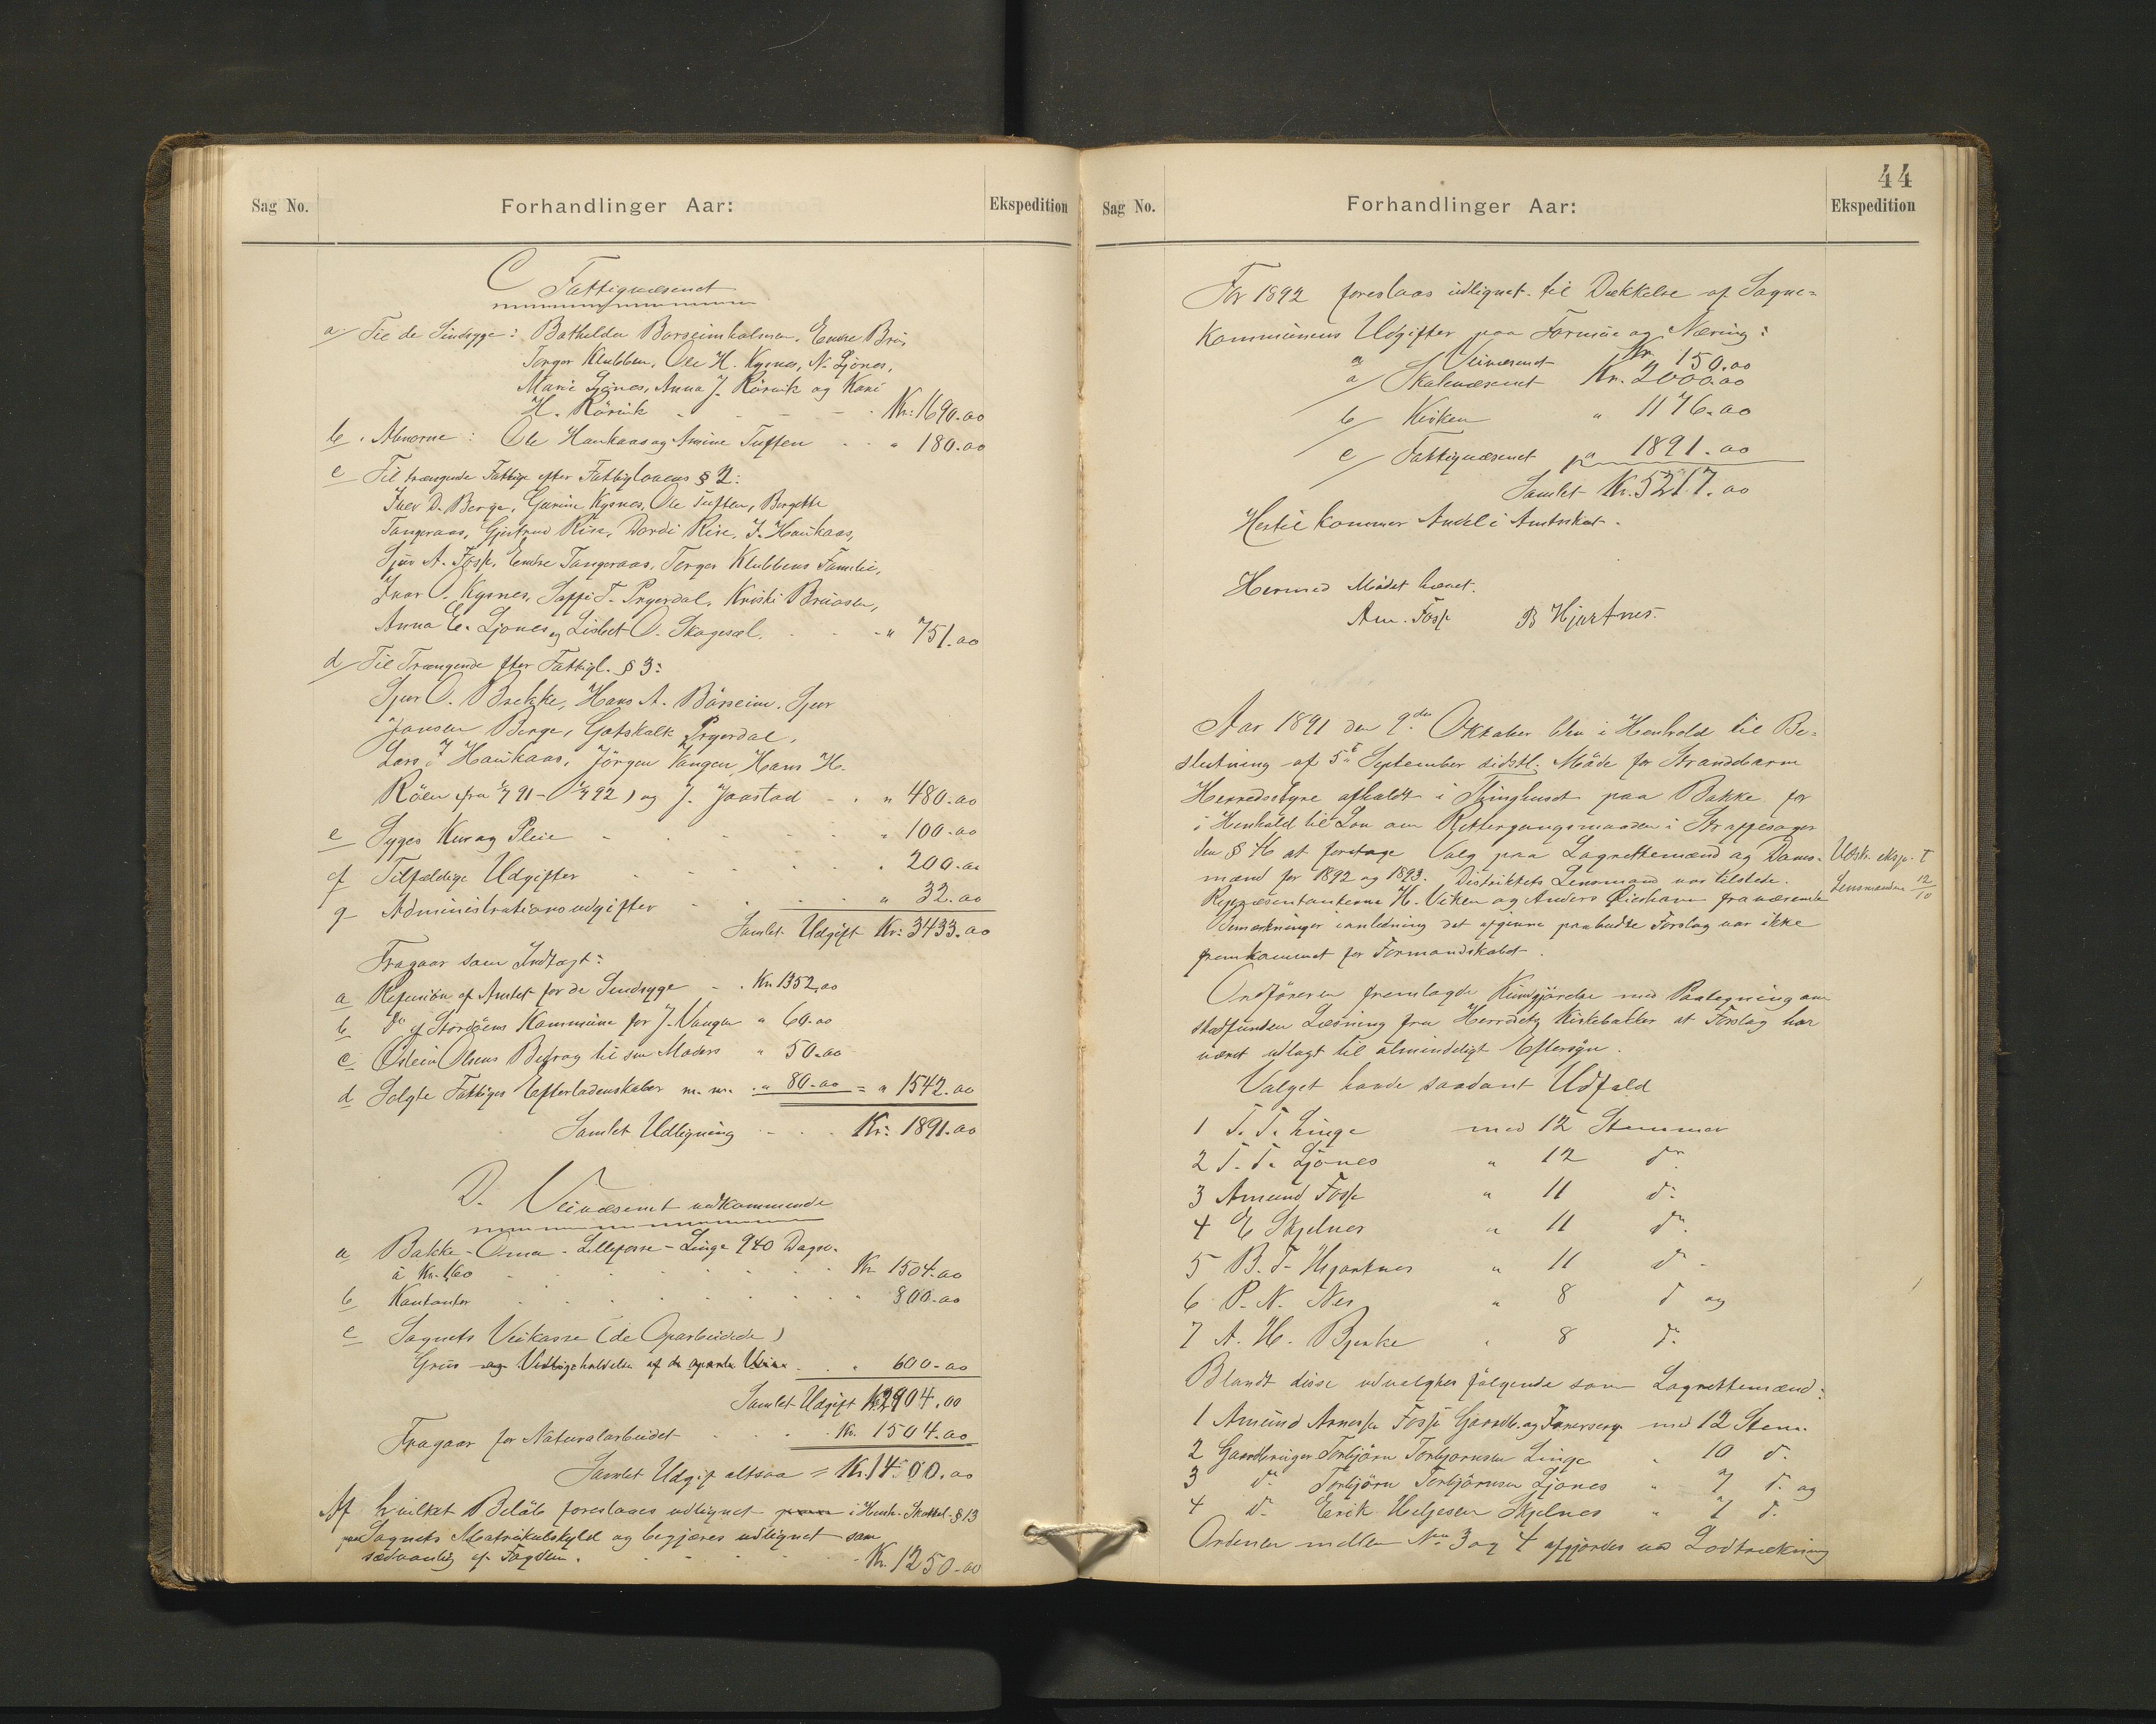 Sag No.
Forhandlinger Aar:
Ekspedition
C Fattigvæsenet
a/ Til de Sindsyge: Bothilda Børseimholmen. Endre Brü,
Torger Klubben, Ole H. Kysnes, N. Ljones,
Mari Ljones, Anna J. Rörvik og Kari
H. Rörvik - - - Kr. 1690.00
b. Abnorme: Ole Haukaas og Amine Tuften - - " 180.00
c Til trængende Fattige efter Fattiglovens § 2:
Iver D. Berge, Gurine Kysnes, Ole Tuften, Bergitte
Tangeraas, Gjertrud Risa, Dordi Rise, J. Haukaas,
Sjur A. Fosse, Endre Tangeraas, Torger Klubbens Familie,
Ivar O. Kysnes, T. Prgerdal, Kristi Bruosen,
Anna E. Ljones og Lisbet O. Skogesæl. - - " 751.00
d/ Til Trængende efter Fattigl. § 3:
Sjur O. Brekke, Hans A. Börseim. Sjur
Jansen Berge, Gotskalk Prgerdal,
Lars J Haukaas, Jörgen Vangen, Hans H.
Röen (fra 1/7 91 - 1/7 92) og J. Jaastad - . " 480.00
e Syges Kur og Pleie - - - " 100.00
f Tilfældige Udgifter - - - " 200.00
g Administrationsudgifter - - " 32.00
Samlet Udgift Kr: 3433.00
Fragaar som Indtægt:
a Refusion af Amtet for de Sindsyge - . Kr. 1352.00
b Do af Stordøens Kommune for J. Vangen " 60.00
c Østein Olsens Bidrag til sin Moder " 50.00
d Solgte Fattiges Efterladenskaber m. m. . " 80.00 = " 1542.00
Samlet Udligning - - - Kr: 1891.00
D. Veivæsenet vedkommende
a Bakke - Oma - Lillefosse - Linge 940 Dagsv.
à Kr. 1,60 - - - Kr 1504.00
b Kontanter - - - " 800.00
c Sognets Veikasse (de Oparbeidede)
Grus og Vedligeholdelse af de oparb. Veie - . " 600.00
Samlet Udgift Kr. 2904.00
Fragaar for Naturalarbeidet - - . Kr. 1504.00
Samlet Udgift altsaa = Kr. 1400.00
Af hvilket Beløb foreslaaes udlignet i Henh. Skattel. § 13
paa Sognets Matrikulskyld og begjæres udlignet som
sædvanlig af Fogden. - - - Kr. 1250.00
44
Sag No.
Forhandlinger Aar:
Ekspedition
For 1892 foreslaas udlignet til Dækkelse af Sogne-
kommunens Udgifter paa Formue og Næring:
a Veivæsenet Kr. 150.00
a/ Skolevæsenet Kr. 2000.00
b/ Kirken " 1176.00
c/ Fattigvæsenet " 1891.00
Samlet Kr. 5217.00
Hertil kommer Andel i Amtsskat.
Hermed Mödet hævet.
Am. Fosse B Hjartnes.
Aar 1891 den 9den Oktober blev i Henhold til Be-
slutning af 5te September sidstl. Möde for Strandebarm
Herredsstyre afholdt i Thinghuset paa Bakke for
i Henhold til Lov om Rettergangsmaaden i Straffesager
den § 46 at foretage Valg paa Lagrettemænd og Doms-
mænd for 1892 og 1893. Distriktets Lensmand var tilstede.
Udskr. eksp. t
Lensmanden 12/10
Repræsentanterne H. Viken og Anders fraværende
Bemærkninger i anledning det afgivne paabudte Forslag var ikke
fremkommet for Formandskabet.
Ordföreren fremlagde Kundgjörelse med Paategning om
stedfunden Læsning fra Herredets Kirkebakker at Forslag har
været udlagt til almindeligt Eftersyn.
Valget havde saadant Udfald
1 T. T. Linge med 12 Stemmer
2 T. T. Ljones " 12 do
3 Amund Fosse " 11 do
4 E Skjelnes " 11 do
5 B. T. Hjartnes " 11 do -
6 P. N. Nes " 8 do og
7 A. H. Bjerke " 8 do
Blandt disse udvalgtes følgende som Lagrettemænd:
1 Amund Arnesen Fosse Gaardb. og med 12 Stem.
2 Gaardbruger Torbjörn Torbjornsen Linge " 10 do
3 do Torbjörn Torbjörnsen Ljones " 7 do og
4 do Erik Helgesen Skjelnes " 7 do
Ordenen mellem No 3 og 4 afgjordes ved Lodtrækning